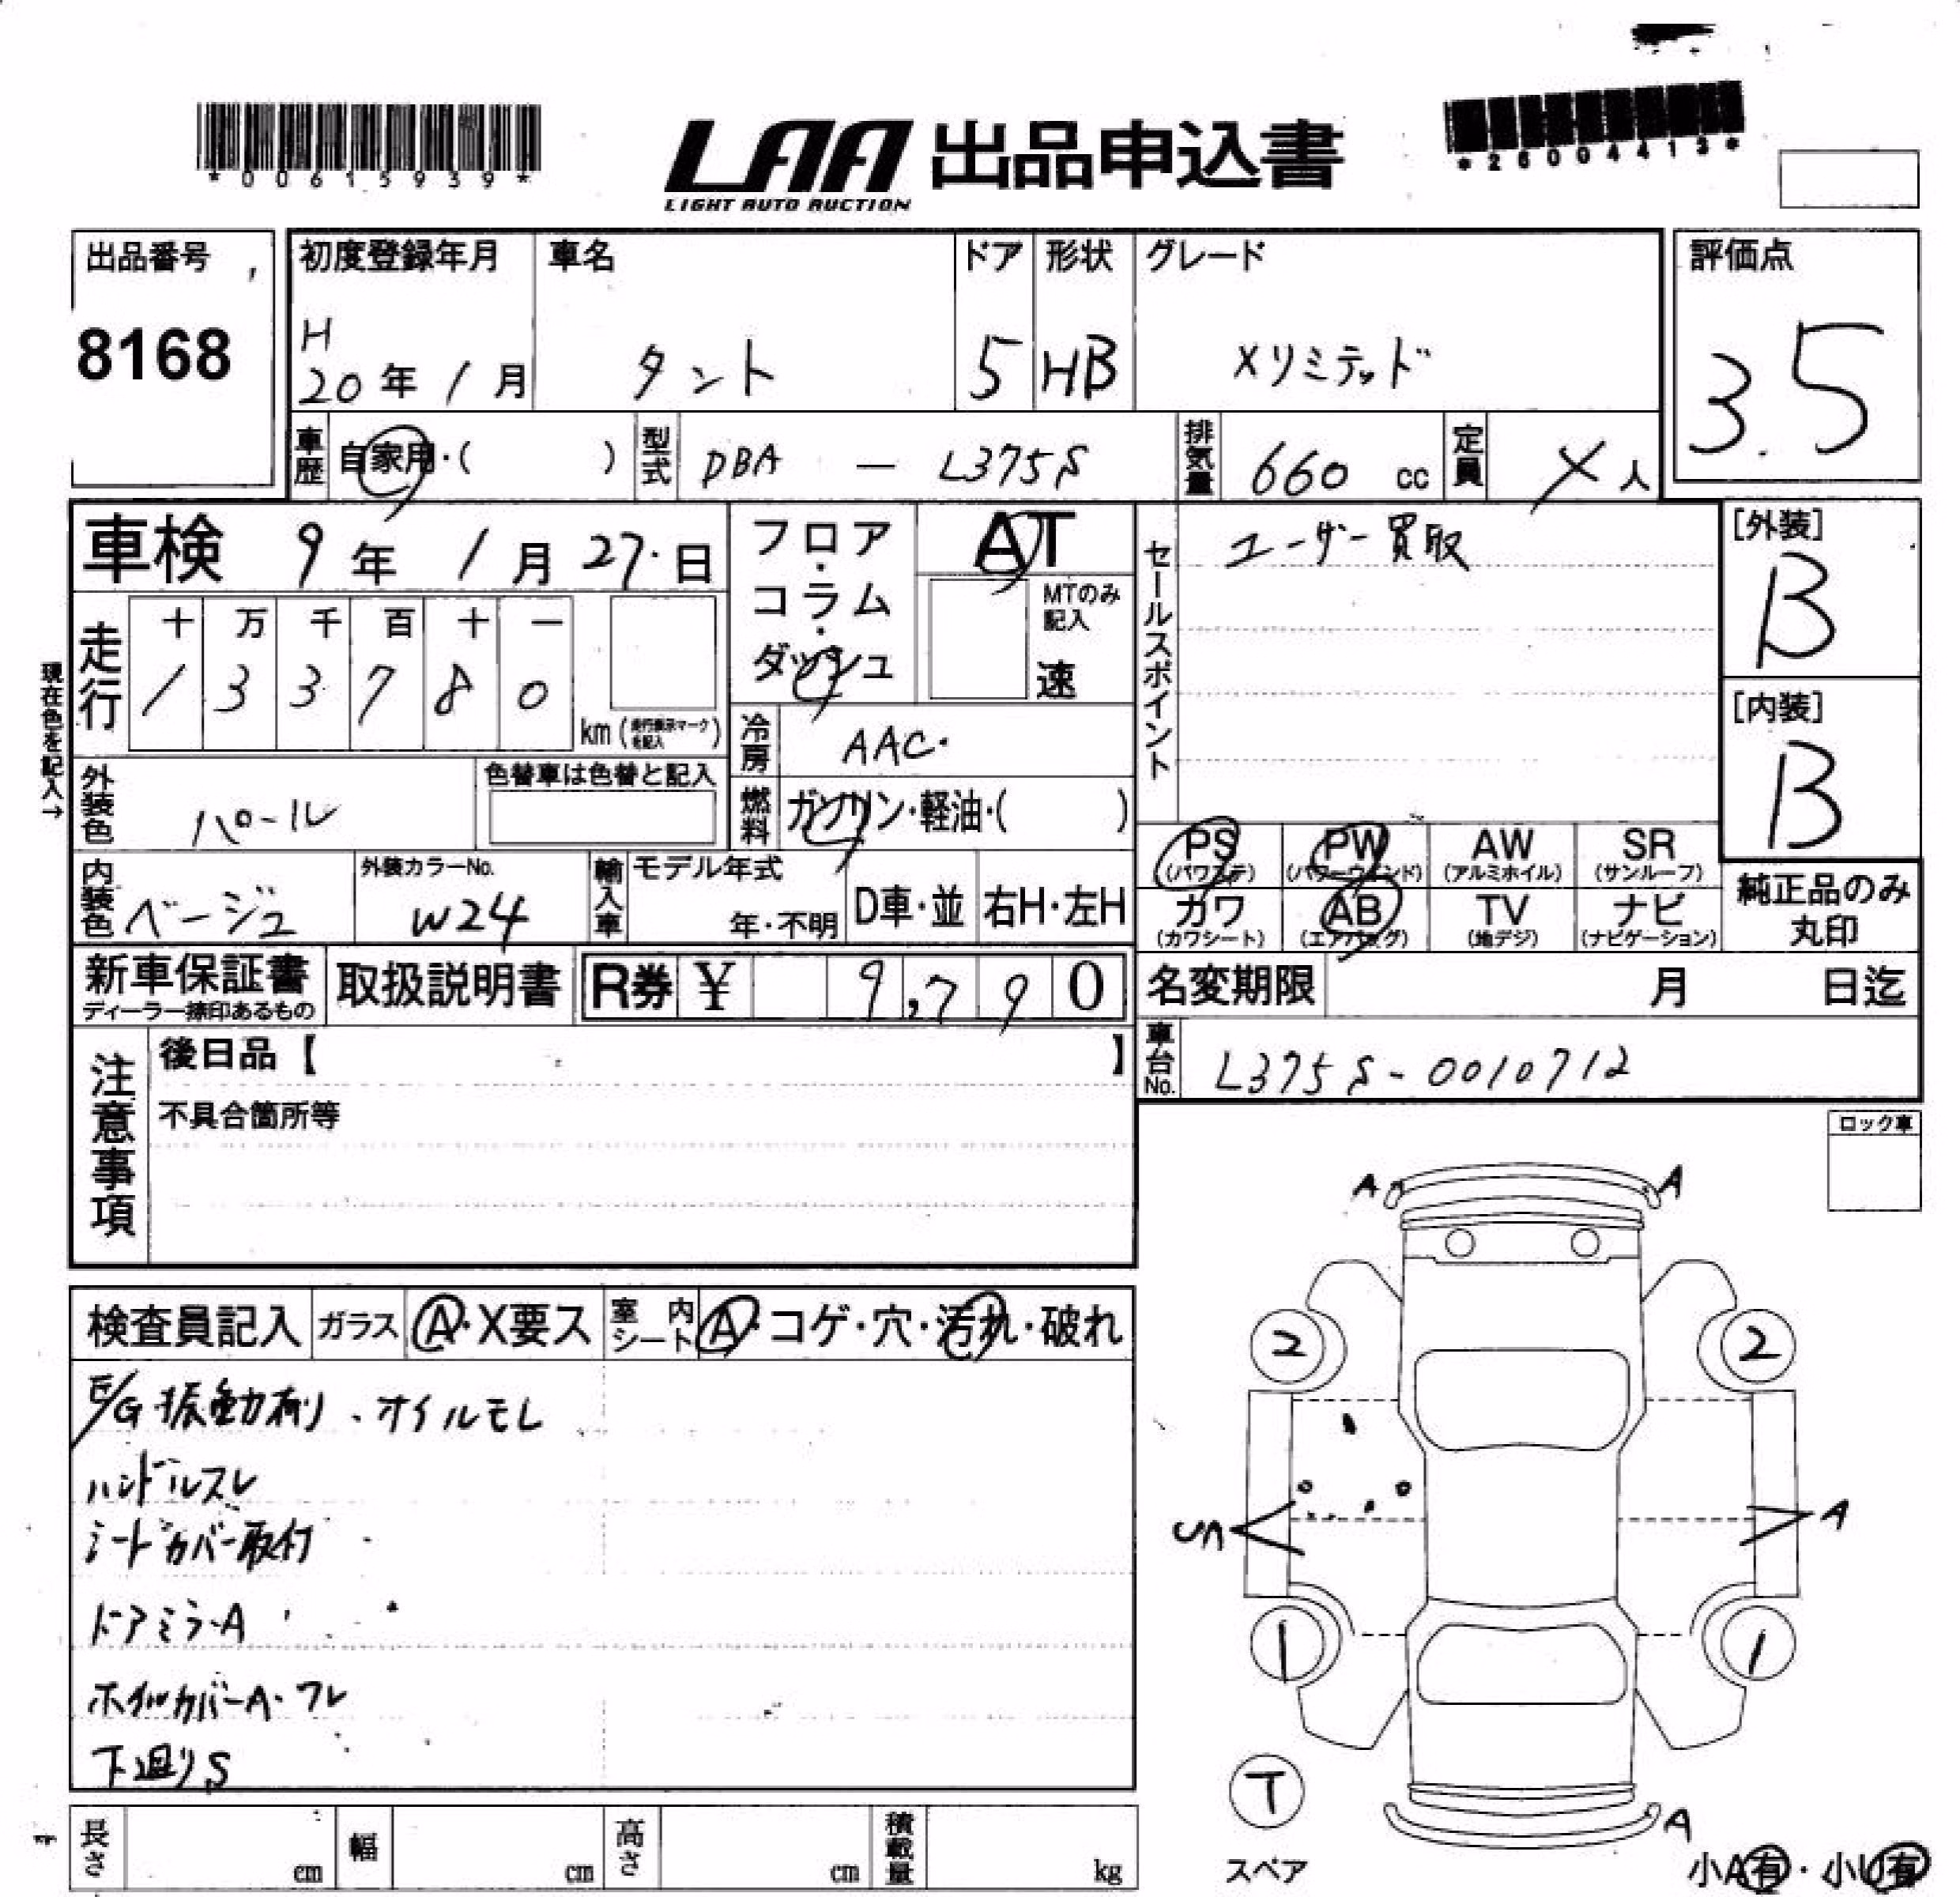 *00615939*
LAA 出品申込書
LIGHT AUTO AUCTION
*26004413*
出品番号
8168
初度登録年月
H
20年 1月
車名
タント
ドア
5
形状
HB
グレード
Xリミテッド
評価点
3.5
車歴
自家用・( )
型式
DBA — L375S
排気量
660 cc
定員
人
車検 9年 1月 27日
フロア・コラム・ダッシュ
AT
MTのみ記入
速
セールスポイント
ユーザー買取
[外装]
B
[内装]
B
現在色を記入→
走行
十 万 千 百 十 一
1 3 3 7 8 0
km (走行表示マークを記入)
冷房
AAC
燃料
ガソリン・軽油・( )
外装色
パール
色替車は色替と記入
内装色
ベージュ
外装カラーNo.
W24
輸入車
モデル年式
年・不明
D車・並
右H・左H
PS (パワステ)
PW (パワーウインド)
AW (アルミホイル)
SR (サンルーフ)
カワ (カワシート)
AB (エアバッグ)
TV (地デジ)
ナビ (ナビゲーション)
純正品のみ丸印
新車保証書
ディーラー捺印あるもの
取扱説明書
R券 ¥ 9,790
名変期限 月 日迄
車台No.
L375S-0010712
注意事項
後日品【 】
不具合箇所等
ロック車
検査員記入
ガラス
A・X要ス
室内シート
A・コゲ・穴・汚れ・破れ
E/G 振動有り、オイルモレ
ハンドルスレ
シートカバー取付
ドアミラーA
ホイルカバーA・ワレ
下廻りS
A A
2 2
UA A
1 1
T
スペア
A
小A有・小U有
長さ cm
幅 cm
高さ cm
積載量 kg